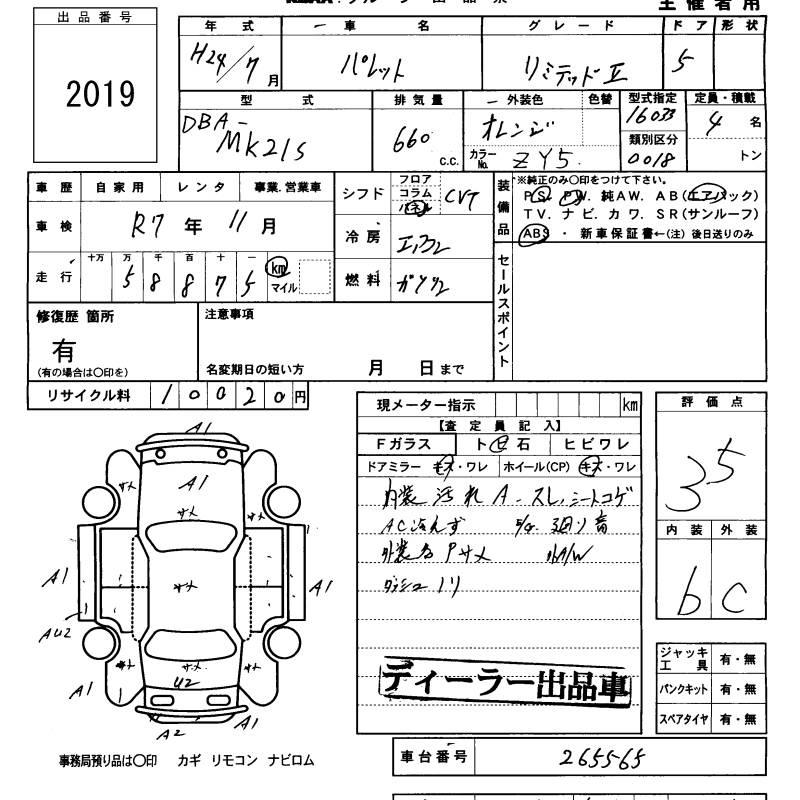 出品票
主催者用
出品番号
2019
年式 一車名 グレード ドア 形状
H24/7月 パレット リミテッドⅡ 5
型式 排気量 外装色 色替 型式指定 定員・積載
DBA-MK21S 660 c.c. オレンジ 16033 4名
カラーNo. ZY5 類別区分 0018 トン
車歴 自家用 レンタ 事業.営業車
車検 R7年11月
走行 十万 万 千 百 十 一
58875 km マイル
シフト フロア コラム パネル CVT
冷房 エアコン
燃料 ガソリン
装備品
※純正のみ〇印をつけて下さい。
PS. PW. 純AW. AB(エアバック)
TV. ナビ. カワ. SR(サンルーフ)
ABS ・ 新車保証書←(注) 後日送りのみ
セールスポイント
修復歴 箇所
有
(有の場合は〇印を)
注意事項
名変期日の短い方 月 日まで
リサイクル料 10020円
現メーター指示 km
【査定員記入】
Fガラス トビ石 ヒビワレ
ドアミラー キズ・ワレ ホイール(CP) キズ・ワレ
内装汚れ A.スレ,シートコゲ
AC冷えず
外装色
評価点
35
内装 外装
b C
A1
A1
サメ
サメ サメ
サメ
A1 A1
AU2
サメ サメ サメ
A1 U2 A1
A2 A1
ディーラー出品車
ジャッキ工具 有・無
パンクキット 有・無
スペアタイヤ 有・無
事務局預り品は〇印 カギ リモコン ナビロム
車台番号 265565